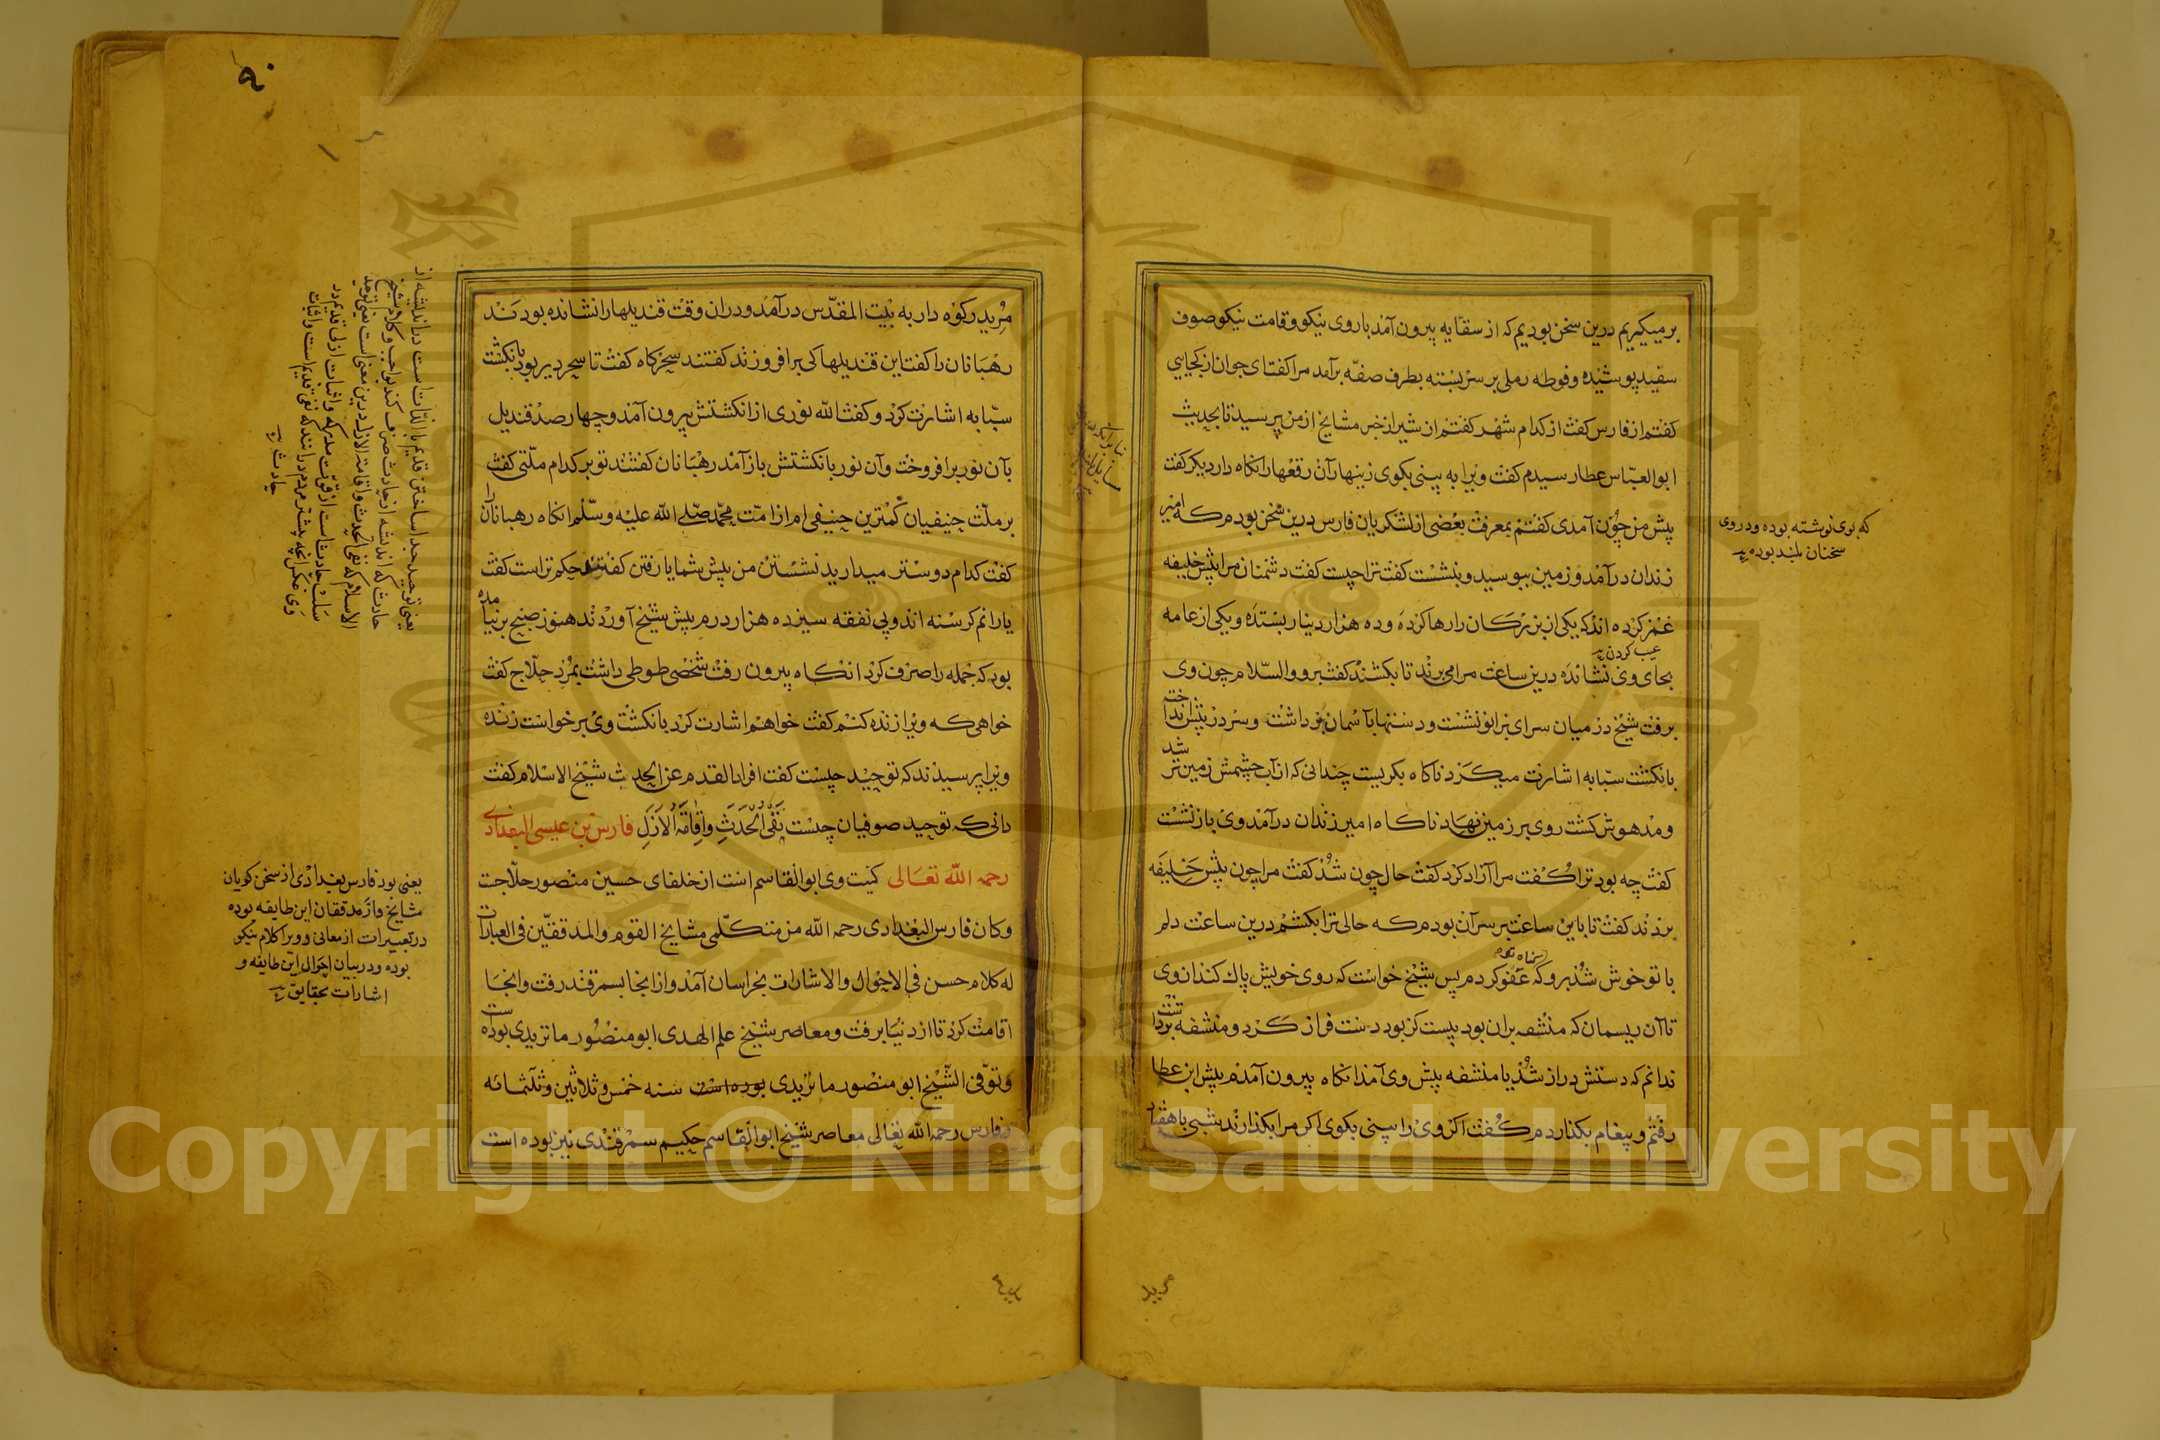 برمیکیریم درین سخن بودیم که از سقایه بیرون آمد باروی نیکو وقامت نیکو صوف
سفید پوشیده وفوطه رملی بر سر بسته بطرف صفه برآمد مرا کفت ای جوان از کجایی
کفتم از فارس کفت از کدام شهر کفتم از شیراز خبر مشایخ از من پرسید تا بحدیث
ابو العباس عطار رسیدم کفت ویرا به بینی بکوی زینهار آن رقعها را نکاه دار دیکر کفت
پیش من چون آمدی کفتم بمعرفت بعضی از لشکریان فارس درین سخن بودم که امیر
زندان درآمد و زمین ببوسید و بنشست کفت ترا چیست کفت دشمنان مرا پیش خلیفه
غمز کرده اند که یکی از بزرکان را رها کرده وده هزار دینار بستده ویکی از عامه
عیب کردن
بجای وی نشانده درین ساعت مرا می برند تا بکشند کفت برو والسلام چون وی
برفت شیخ در میان سرای بزانو نشست و دستها بآسمان برداشت وسر در پیش انداخت
بانکشت سبابه اشارت میکرد ناکاه بکریست چندانی که از آب چشمش زمین تر شد
ومدهوش کشت روی بر زمین نهاد ناکاه امیر زندان درآمد وی باز نشست
کفت چه بود ترا کفت مرا آزاد کرد کفت حال چون شد کفت مرا چون پیش خلیفه
بردند کفت تا باین ساعت بر سر آن بودم که حالی ترا بکشم درین ساعت دلم
با تو خوش شد برو که عفو کردم پس شیخ خواست که روی خویش پاک کند از وی
تا آن ریسمان که منشفه بران بود بیست کز بود دست فراز کرد ومنشفه برداشت
ندانم که دستش دراز شد یا منشفه پیش وی آمد انکاه بیرون آمدم پیش ابن عطا
رفتم و پیغام بکذاردم کفت اکر وی را بینی بکوی اکر مرا بکذارند شبی با هفتاد
که بوی نوشته بوده ودر وی
سخنان بلند بوده
مرید
۹۰
مرید رکوه دار به بیت المقدس درآمد ودران وقت قندیلها را نشانده بودند
رهبانان را کفت این قندیلها کی برافروزند کفتند سحرکاه کفت تا سحر دیر بود بانکشت
سبابه اشارت کرد وکفت الله نوری از انکشتش بیرون آمد وچهار صد قندیل
بآن نور برافروخت وآن نور بانکشتش باز آمد رهبانان کفتند تو بر کدام ملتی کفت
بر ملت حنیفیان کمترین حنیفی ام از امت محمد صلی الله علیه وسلم انکاه رهبانان را
کفت کدام دوستر میدارید نشستن من پیش شما یا رفتن کفتند حکم تراست کفت
یارانم کرسنه اند وبی نفقه سیزده هزار درم پیش شیخ آوردند هنوز صبح برنیامده
بود که جمله را صرف کرد انکاه بیرون رفت شخصی طوطی داشت بمرد حلاج کفت
خواهی که ویرا زنده کنم کفت خواهم اشارت کرد بانکشت وی برخواست زنده
ویرا پرسیدند که توحید چیست کفت افراد القدم عن الحدث شیخ الاسلام کفت
دانی که توحید صوفیان چیست نفی الحدث واقامة الازل فارس بن عیسی البغدادی
رحمه الله تعالی کنیت وی ابو القاسم است از خلفای حسین منصور حلاجست
وکان فارس البغدادی رحمه الله من متکلمی مشایخ القوم والمدققین فی العبارات
له کلام حسن فی الاحوال والاشارات بخراسان آمد واز انجا بسمرقند رفت وانجا
اقامت کرد تا از دنیا برفت ومعاصر شیخ علم الهدی ابو منصور ماتریدی بوده است
وتوفی الشیخ ابو منصور ماتریدی بوده است سنه خمس وثلاثین وثلثمائه
وفارس رحمه الله تعالی معاصر شیخ ابو القاسم حکیم سمرقندی نیز بوده است
یعنی بود فارس بغدادی از سخن کویان
مشایخ واز مدققان این طایفه بوده
در تعبیرات از معانی وویرا کلام نیکو
بوده ودر بیان احوال این طایفه و
اشارات بحقایق
Copyright © King Saud University